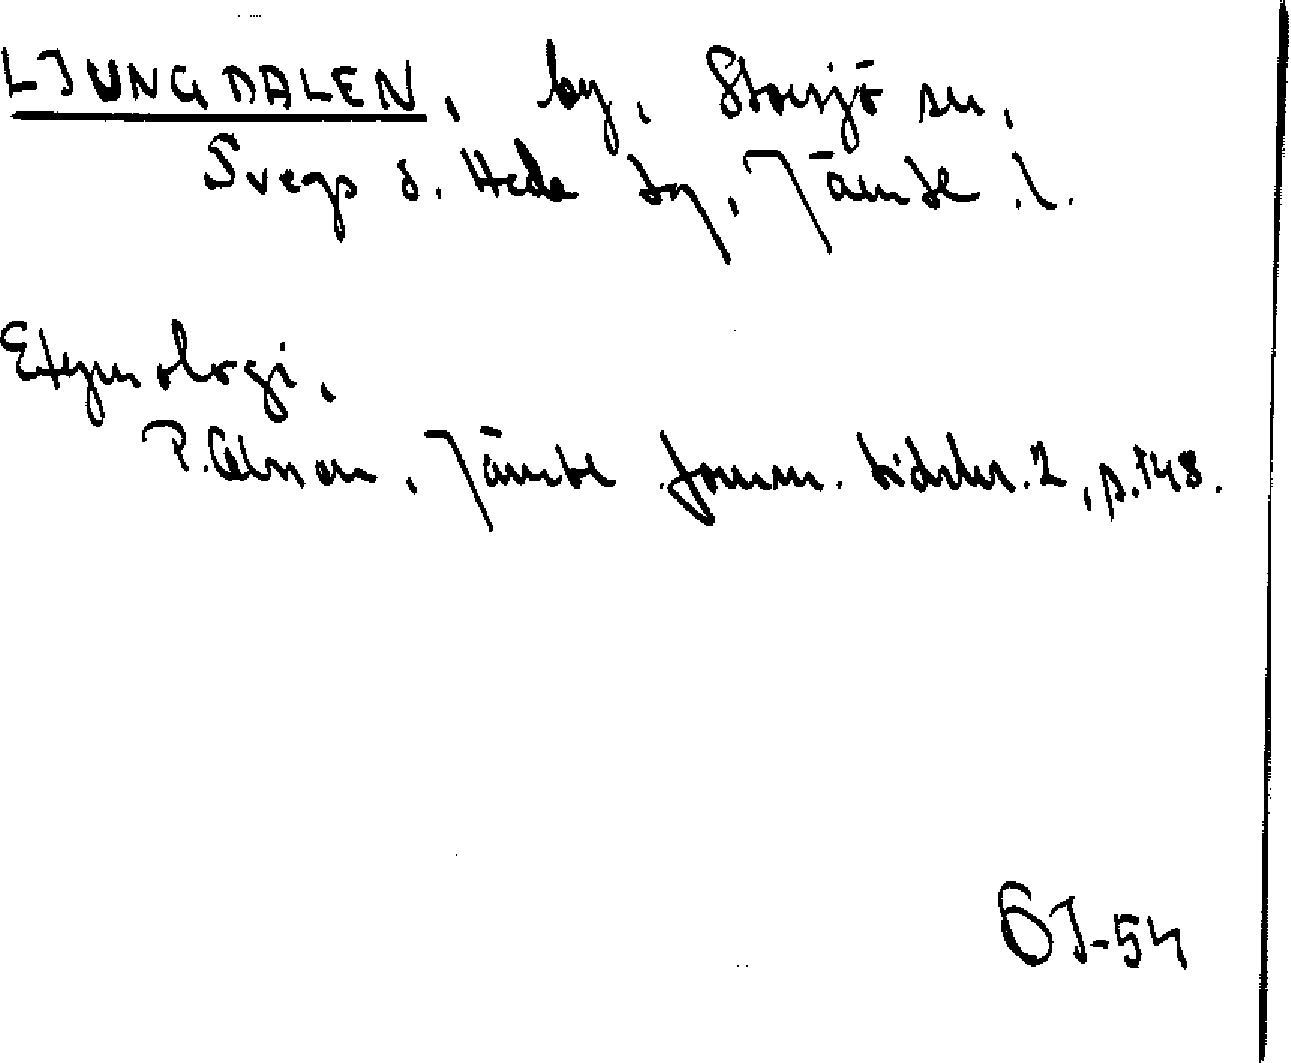 LJUNGDALEN, by, Storsjö sn,
Svegs o. Hede tg, Jämtl. l.
Etymologi,
P. Olsson, Jämtl fornm. tidskr. 2, p. 148.
ÖJ-54